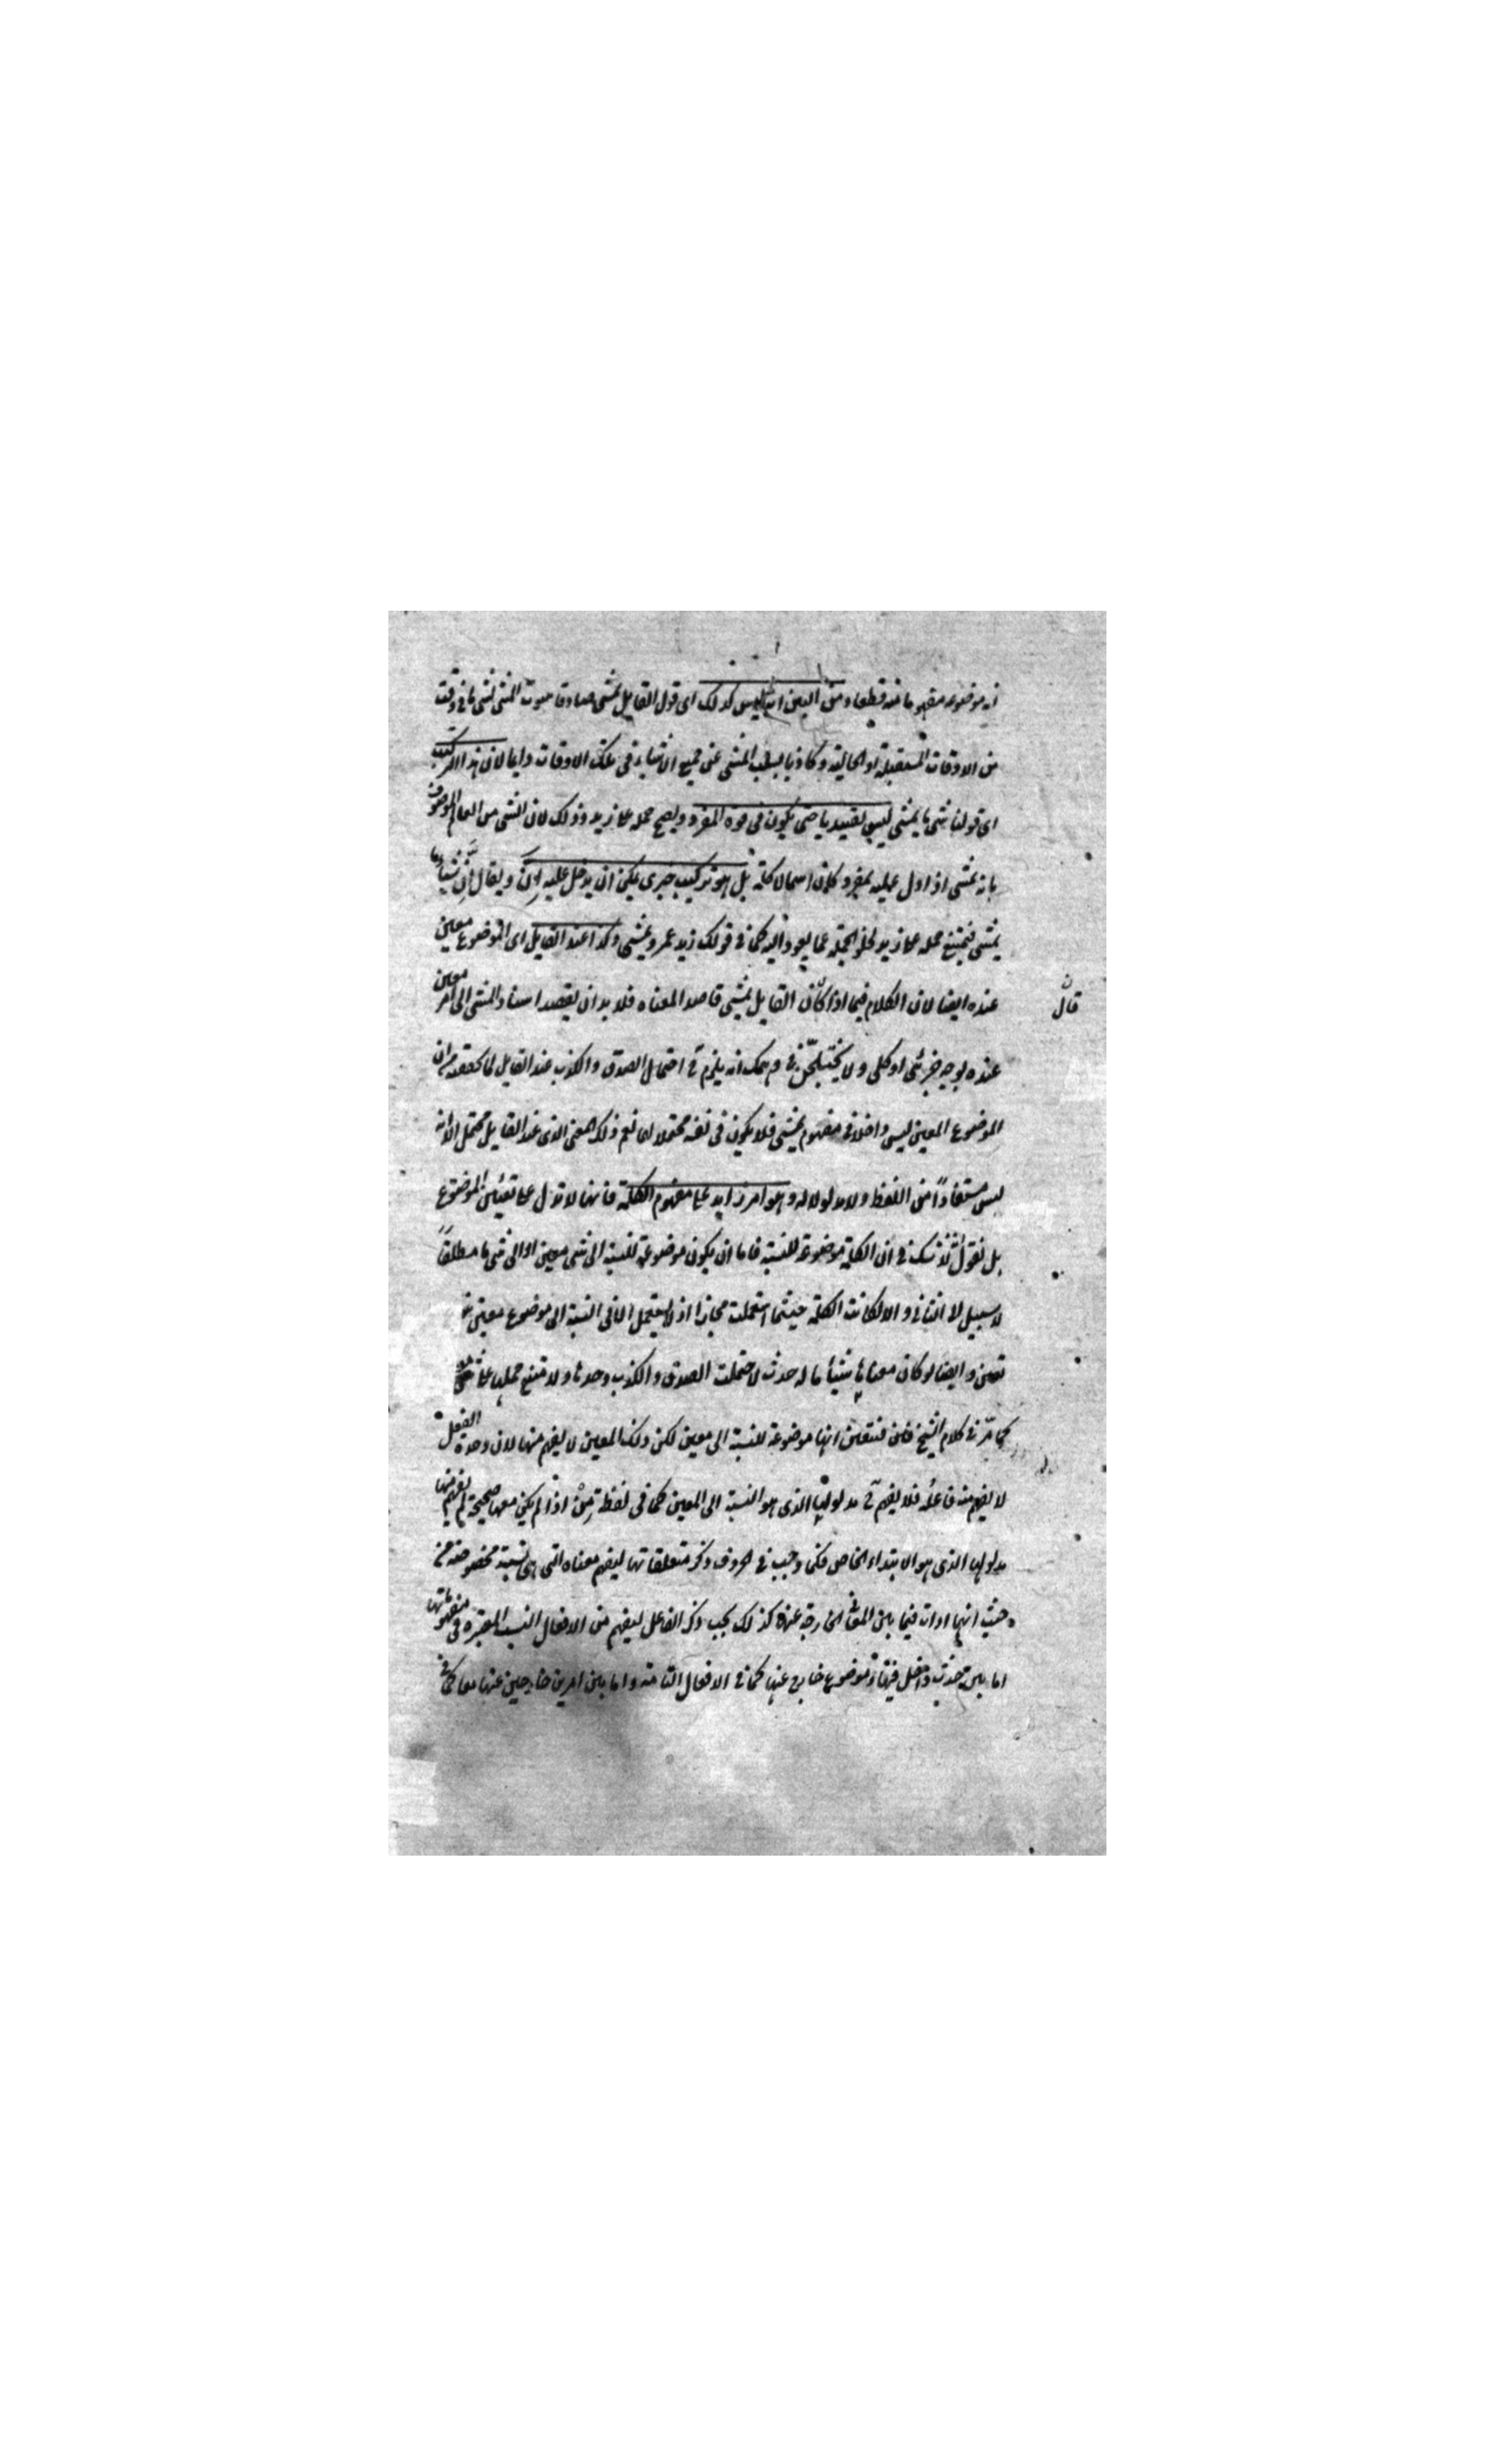 انه موضوع مفهوما منه قطعا ومن البين انه ليس كذلك اى قول القايل يمشى صادقا بثبوت المشى لشى ما فى وقت
من الاوقات المستقبلة او الحالية وكاذبا بسلب المشى عن جميع الاشياء فى تلك الاوقات وايضا لان هذا التركيب
اى قولنا شى ما يمشى ليس تقييديا حتى يكون فى قوة المفرد ويصح حمله على زيد وذلك لان الشى من العام الموصوف
بانه يمشى اذا دل عليه بمفرد كان اسما لا كلمة بل هو تركيب خبرى يمكن ان يدخل عليه ان ويقال ان شيئا ما
يمشى فيمتنع حمله على زيد لخلو الجملة عما يعود اليه كما فى قولك زيد عمرو يمشى وكذا عند القايل اى الموضوع معين
عنده ايضا لان الكلام فيما اذا كان القايل يمشى قاصدا لمعناه فلا بد ان يقصد اسناد المشى الى امر معين
قال
عنده بوجه جزئى او كلى ولا يختلجن فى وهمك انه يلزم ح احتمال الصدق والكذب عند القايل لما تحققته من ان
الموضوع المعين ليس داخلا فى مفهوم يمشى فلا يكون فى نفسه محتملا لهما نعم ذلك المعنى الذى عند القايل محتمل الا انه
ليس مستفادا من اللفظ ولا مدلولا له وهو امر زايد على مفهوم الكلمة فانها لا تدل على تعيين الموضوع
بل نقول لا شك فى ان الكلمة موضوعة للنسبة فاما ان يكون موضوعة للنسبة الى شى معين او الى شى ما مطلقا
لا سبيل الى الثانى والا لكانت الكلمة حيثما استعملت مجازا اذ لا يستعمل الا فى النسبة الى موضوع معين
وايضا لو كان معناها شيئا ما له حدث لاحتملت الصدق والكذب وحدها ولامتنع حملها على
كما مر فى كلام الشيخ فتعين انها موضوعة للنسبة الى معين لكن ذلك المعين لا يفهم منها لان وحده الفعل
لا يفهم منه فاعله فلا يفهم ح مدلولها الذى هو النسبة الى المعين كما فى لفظة من اذا لم يكن معها صحيحة لم يفهم منها
مدلولها الذى هو الابتداء الخاص فكما وجب فى الحروف ذكر متعلقاتها ليفهم معناه التى هى نسبة مخصوصة من
حيث انها ادات فيما بين المعانى الخارجة عنها كذلك يجب ذكر الفاعل ليفهم من الافعال النسب المعتبرة فى مفهوماتها
اما بين حدث داخل فيها وموضوع خارج عنها كما فى الافعال التامة واما بين امرين خارجين عنها معا كما فى